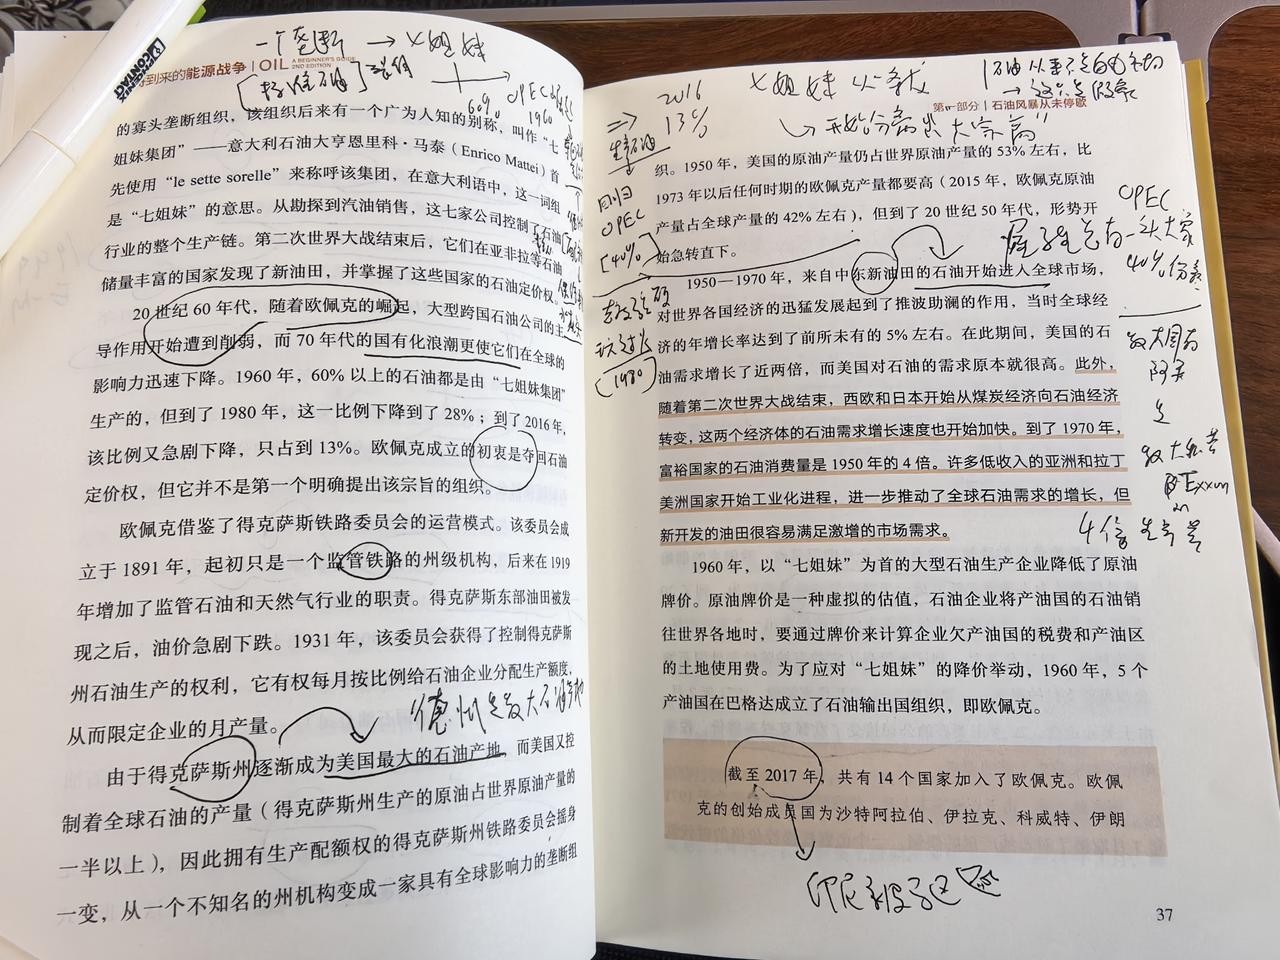 一个垄断 → 七姐妹
到来的能源战争 | OIL A BEGINNER'S GUIDE 2ND EDITION
60% OPEC
1960
的寡头垄断组织，该组织后来有一个广为人知的别称，叫作“七
姐妹集团”——意大利石油大亨恩里科·马泰（Enrico Mattei）首
先使用“le sette sorelle”来称呼该集团，在意大利语中，这一词组
是“七姐妹”的意思。从勘探到汽油销售，这七家公司控制了石油
行业的整个生产链。第二次世界大战结束后，它们在亚非拉等石油
储量丰富的国家发现了新油田，并掌握了这些国家的石油定价权。
20 世纪 60 年代，随着欧佩克的崛起，大型跨国石油公司的主
导作用开始遭到削弱，而 70 年代的国有化浪潮更使它们在全球的
影响力迅速下降。1960 年，60% 以上的石油都是由“七姐妹集团”
生产的，但到了 1980 年，这一比例下降到了 28%；到了 2016 年，
该比例又急剧下降，只占到 13%。欧佩克成立的初衷是夺回石油
定价权，但它并不是第一个明确提出该宗旨的组织。
欧佩克借鉴了得克萨斯铁路委员会的运营模式。该委员会成
立于 1891 年，起初只是一个监管铁路的州级机构，后来在 1919
年增加了监管石油和天然气行业的职责。得克萨斯东部油田被发
现之后，油价急剧下跌。1931 年，该委员会获得了控制得克萨斯
州石油生产的权利，它有权每月按比例给石油企业分配生产额度，
从而限定企业的月产量。
德州是最大石油产地
由于得克萨斯州逐渐成为美国最大的石油产地，而美国又控
制着全球石油的产量（得克萨斯州生产的原油占世界原油产量的
一半以上），因此拥有生产配额权的得克萨斯州铁路委员会摇身
一变，从一个不知名的州机构变成一家具有全球影响力的垄断组
2016 七姐妹
⇒ 13%
第一部分 | 石油风暴从未停歇
织。1950 年，美国的原油产量仍占世界原油产量的 53% 左右，比
1973 年以后任何时期的欧佩克产量都要高（2015 年，欧佩克原油
产量占全球产量的 42% 左右），但到了 20 世纪 50 年代，形势开
始急转直下。
OPEC
[40%]
(1980)
OPEC
40%份额
Exxon
4倍
1950—1970 年，来自中东新油田的石油开始进入全球市场，
对世界各国经济的迅猛发展起到了推波助澜的作用，当时全球经
济的年增长率达到了前所未有的 5% 左右。在此期间，美国的石
油需求增长了近两倍，而美国对石油的需求原本就很高。此外，
随着第二次世界大战结束，西欧和日本开始从煤炭经济向石油经济
转变，这两个经济体的石油需求增长速度也开始加快。到了 1970 年，
富裕国家的石油消费量是 1950 年的 4 倍。许多低收入的亚洲和拉丁
美洲国家开始工业化进程，进一步推动了全球石油需求的增长，但
新开发的油田很容易满足激增的市场需求。
1960 年，以“七姐妹”为首的大型石油生产企业降低了原油
牌价。原油牌价是一种虚拟的估值，石油企业将产油国的石油销
往世界各地时，要通过牌价来计算企业欠产油国的税费和产油区
的土地使用费。为了应对“七姐妹”的降价举动，1960 年，5 个
产油国在巴格达成立了石油输出国组织，即欧佩克。
截至 2017 年，共有 14 个国家加入了欧佩克。欧佩
克的创始成员国为沙特阿拉伯、伊拉克、科威特、伊朗
37